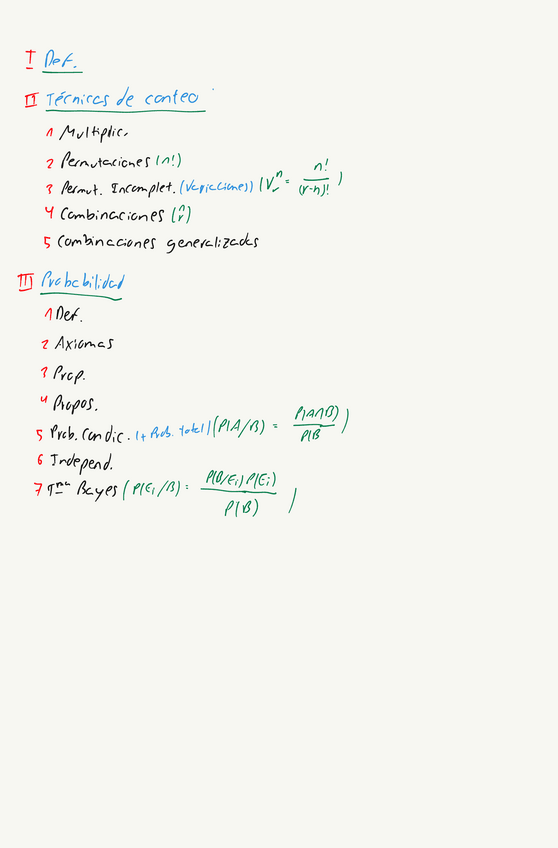 I Def.
II Técnicas de conteo
1 Multiplic.
2 Permutaciones (n!)
3 Permut. Incomplet. (Variaciones) (V_r^n = n!/(r-n)!)
4 Combinaciones (n r)
5 Combinaciones generalizadas
III Probabilidad
1 Def.
2 Axiomas
3 Prop.
4 Propos.
5 Prob. Condic. (+ Prob. total) (P(A/B) = P(A∩B)/P(B)
6 Independ.
7 Tma Bayes (P(Ei/B) = P(B/Ei) P(Ei)/P(B))